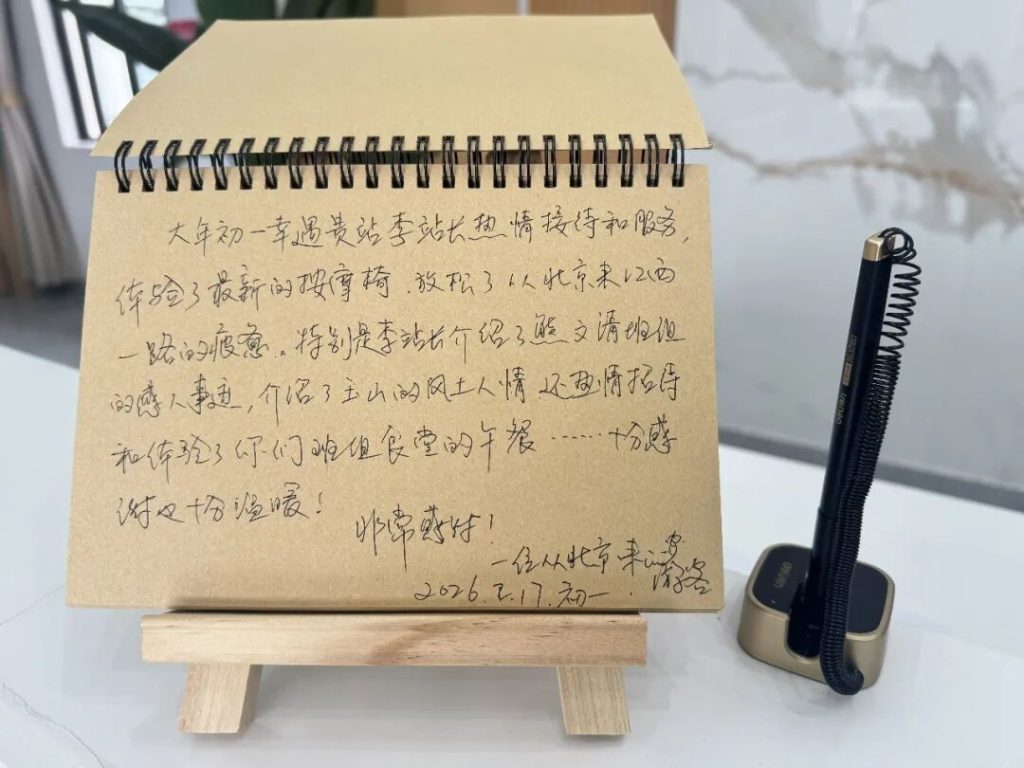 大年初一幸遇贵站李站长热情接待和服务，
体验了最新的按摩椅，放松了从北京来江西
一路的疲惫。特别是李站长介绍了熊文清班组
的感人事迹，介绍了玉山的风土人情还热情招待
和体验了你们班组食堂的午餐……十分感
谢也十分温暖！
非常感谢！
一位从北京来的
游客
2026.2.17.初一.
deli